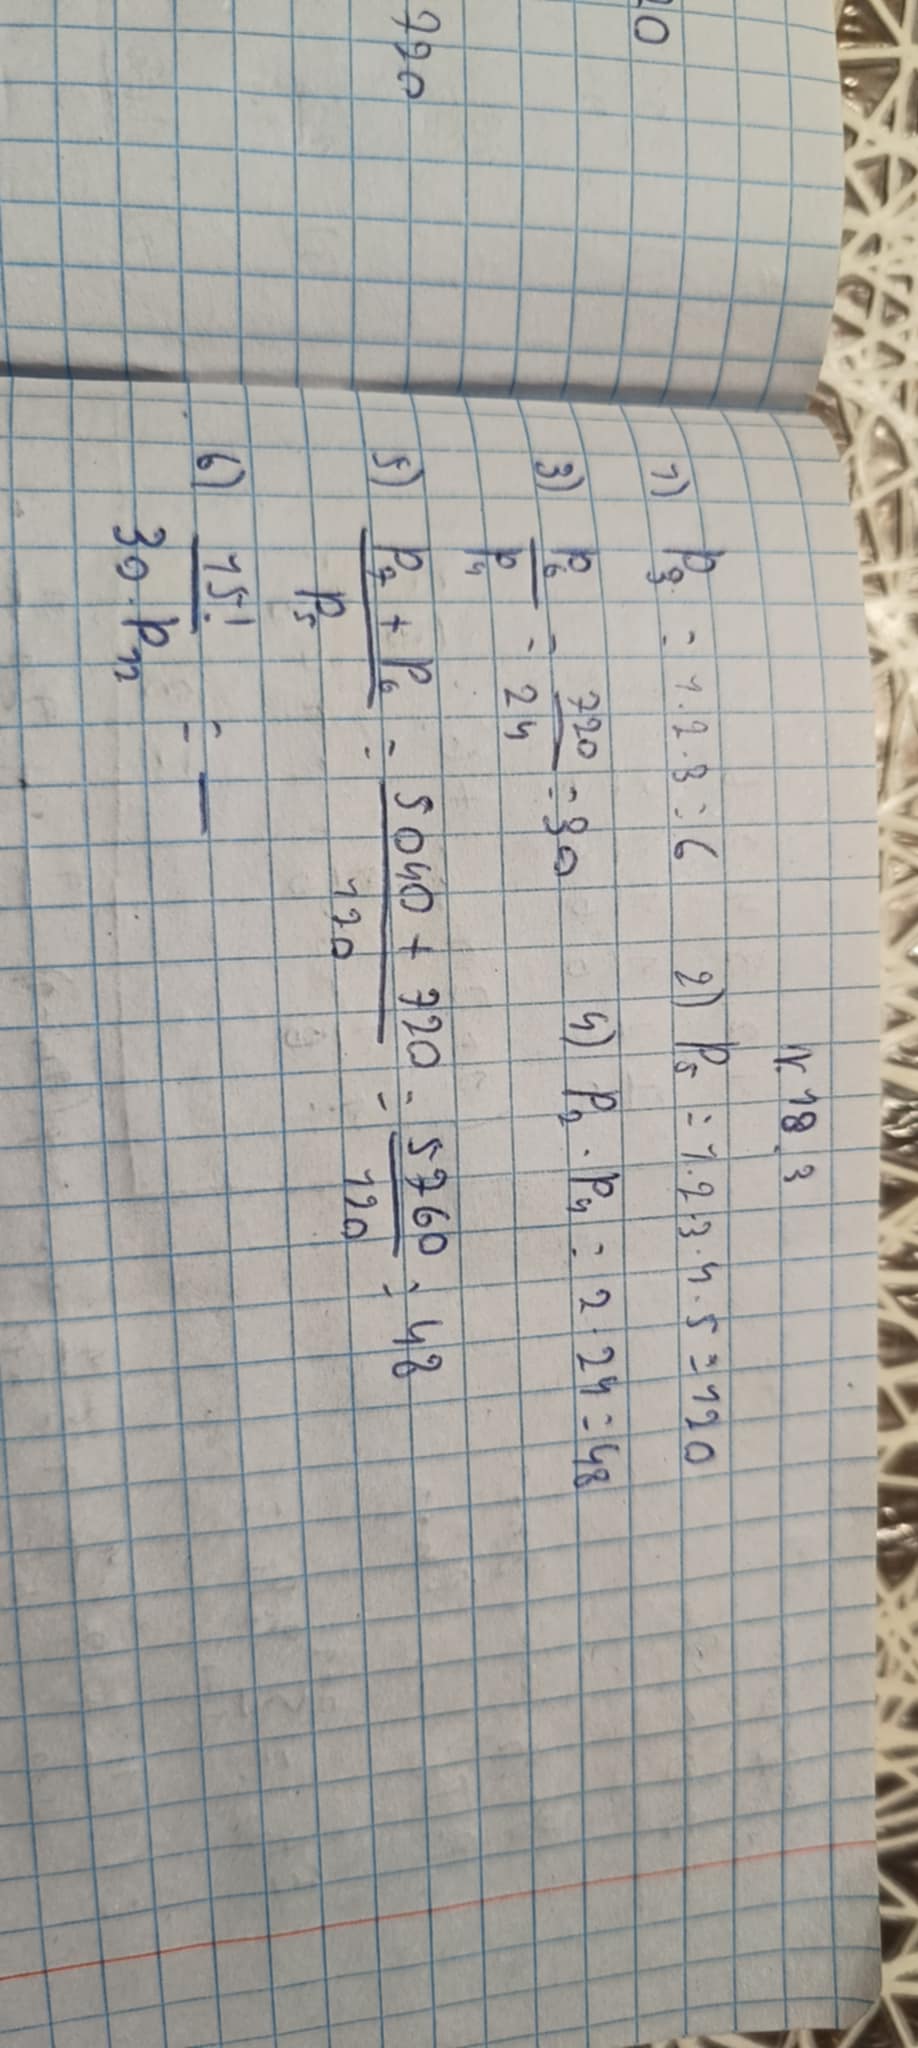 20
720
N. 18.3
1) P₃ = 1·2·3 = 6 2) P₅ = 1·2·3·4·5 = 120
3) P₆/P₄ = 720/24 = 30 4) P₂ · P₄ = 2·24 = 48
5) (P₇ + P₆)/P₅ = (5040 + 720)/120 = 5760/120 = 48
6) 15!/(30·P₁₂) = —